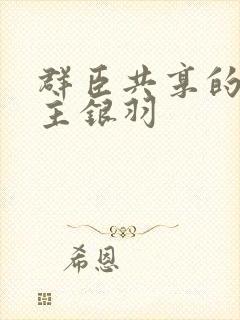 群臣共享的
主银羽
希恩